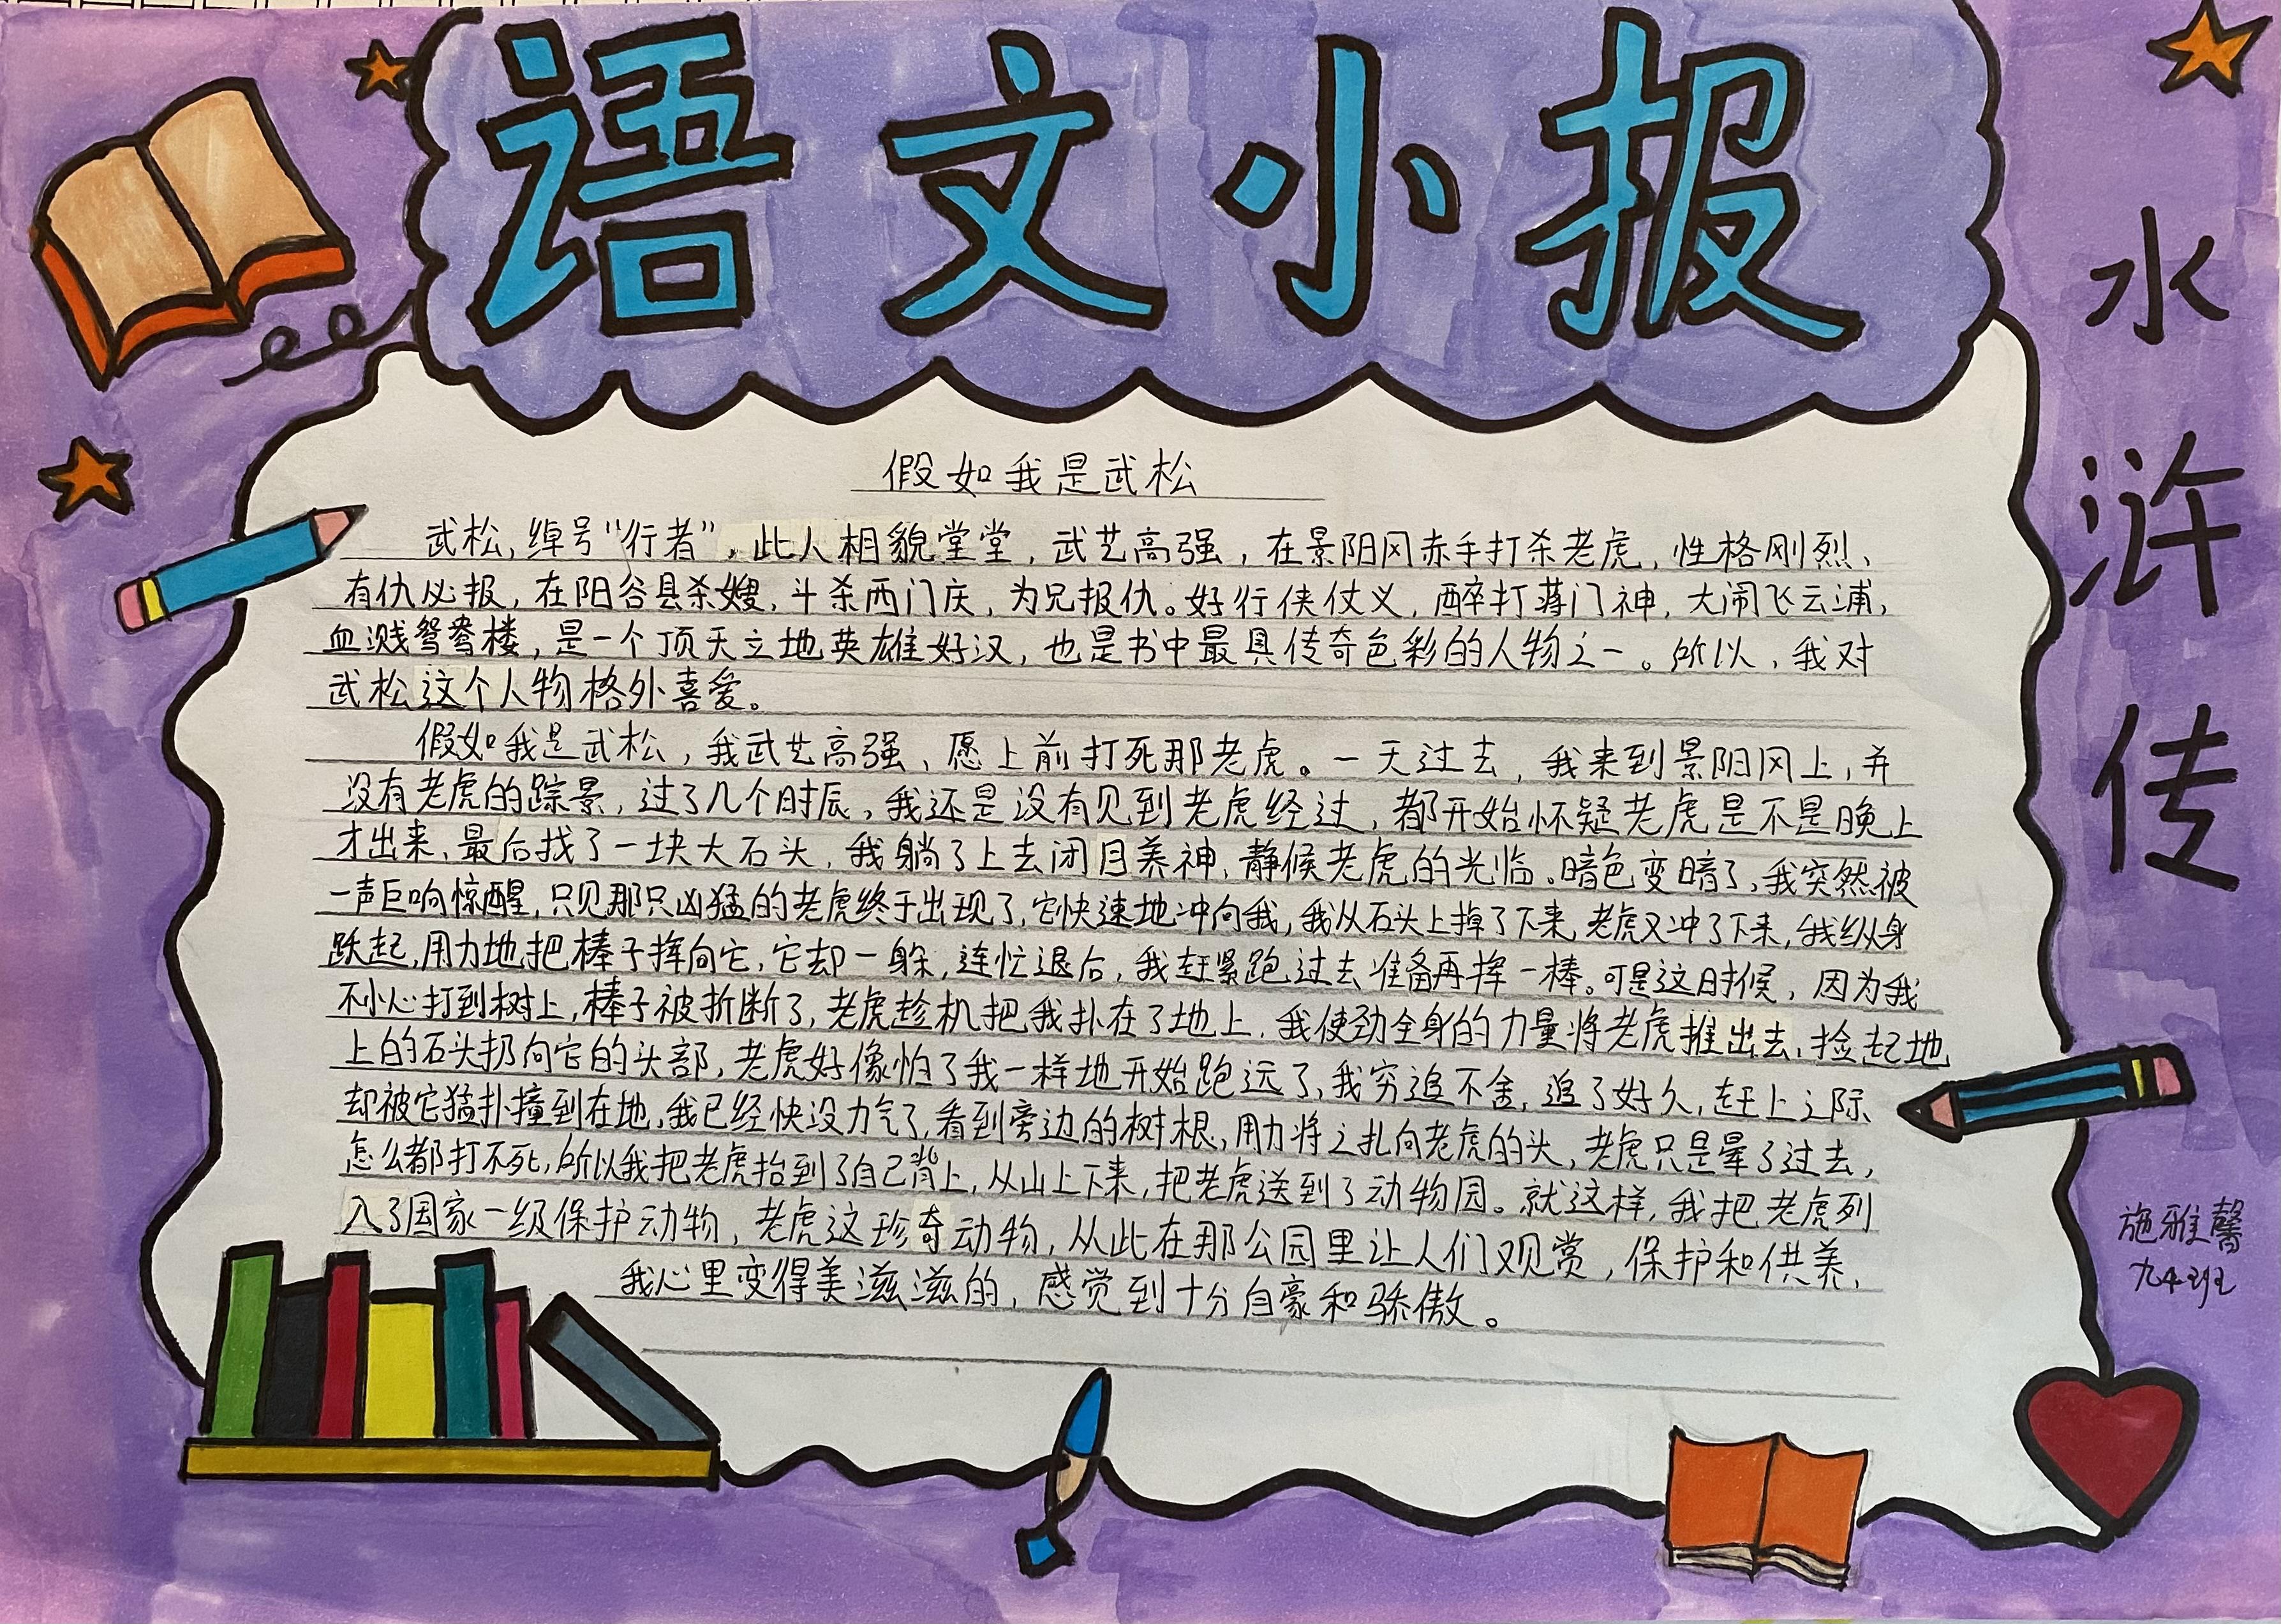 语文小报
水浒传
假如我是武松
武松，绰号“行者”，此人相貌堂堂，武艺高强，在景阳冈赤手打杀老虎，性格刚烈、
有仇必报，在阳谷县杀嫂，斗杀西门庆，为兄报仇。好行侠仗义，醉打蒋门神，大闹飞云浦，
血溅鸳鸯楼，是一个顶天立地英雄好汉，也是书中最具传奇色彩的人物之一。所以，我对
武松这个人物格外喜爱。
假如我是武松，我武艺高强、愿上前打死那老虎。一天过去，我来到景阳冈上，并
没有老虎的踪景，过了几个时辰，我还是没有见到老虎经过，都开始怀疑老虎是不是晚上
才出来、最后找了一块大石头，我躺了上去闭目养神，静候老虎的光临。暗色变暗了，我突然被
一声巨响惊醒，只见那只凶猛的老虎终于出现了，它快速地冲向我，我从石头上掉了下来，老虎又冲了下来，我纵身
跃起，用力地把棒子挥向它，它却一躲，连忙退后，我赶紧跑过去准备再挥一棒。可是这时候，因为我
不小心打到树上，棒子被折断了，老虎趁机把我扑在了地上，我使劲全身的力量将老虎推出去，捡起地
上的石头扔向它的头部，老虎好像怕了我一样地开始跑远了，我穷追不舍，追了好久，赶上之际
却被它猛扑撞到在地，我已经快没力气了，看到旁边的树根，用力将之扎向老虎的头，老虎只是晕了过去，
怎么都打不死，所以我把老虎抬到了自己背上，从山上下来，把老虎送到了动物园。就这样，我把老虎列
入了国家一级保护动物，老虎这珍奇动物，从此在那公园里让人们观赏，保护和供养，
我心里变得美滋滋的，感觉到十分自豪和骄傲。
施雅馨
九4班